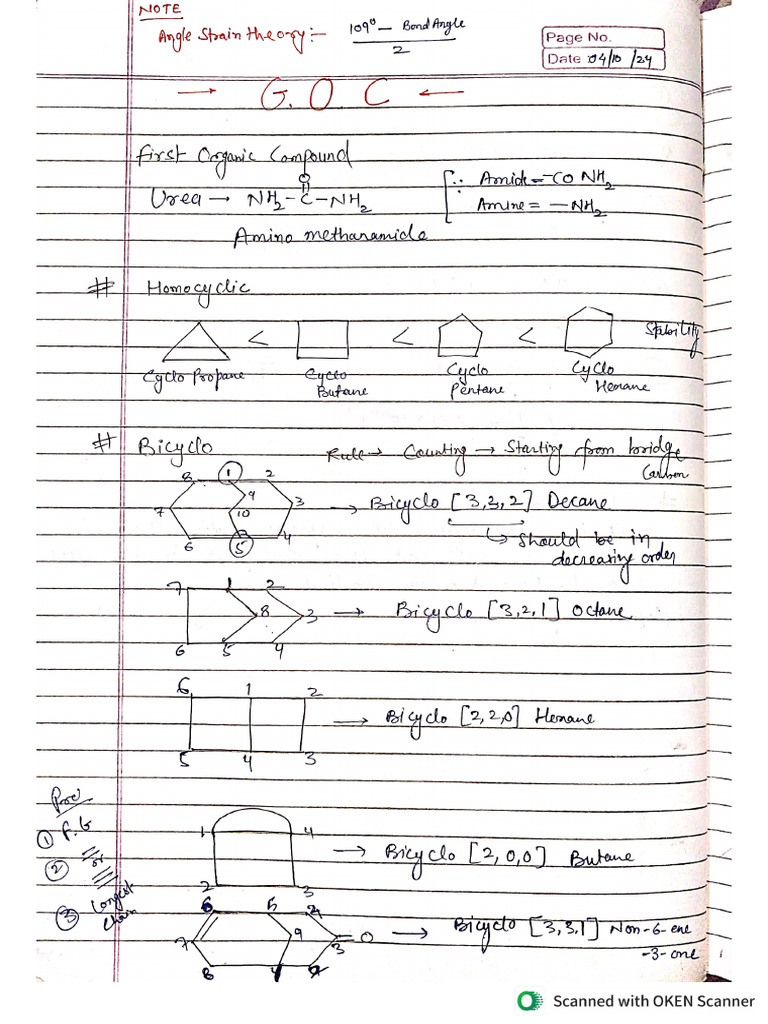 NOTE
Angle Strain theory:- 109° - Bond Angle
2
Page No.
Date 04/10/24
→ G.O.C ←
First Organic Compound
O
Urea → NH2-C-NH2
∵ Amide = -CONH2
Amine = -NH2
Amino methanamide
# Homocyclic
< < < Stability
Cyclo Propane Cyclo Butane Cyclo Pentane Cyclo Hexane
# Bicyclo Rule → Counting → Starting from bridge Carbon
8 1 2
9
7 10 3
6 5 4
→ Bicyclo [3,3,2] Decane
↳ Should be in
decreasing order
7 1 2
8 3
6 5 4
→ Bicyclo [3,2,1] Octane
6 1 2
5 4 3
→ Bicyclo [2,2,0] Hexane
① F.G
② or
③ Longest Chain
1 4
2 3
→ Bicyclo [2,0,0] Butane
6 5 4
7 9 3 O
8 1 2
→ Bicyclo [3,3,1] Non-6-ene
-3-one
Scanned with OKEN Scanner